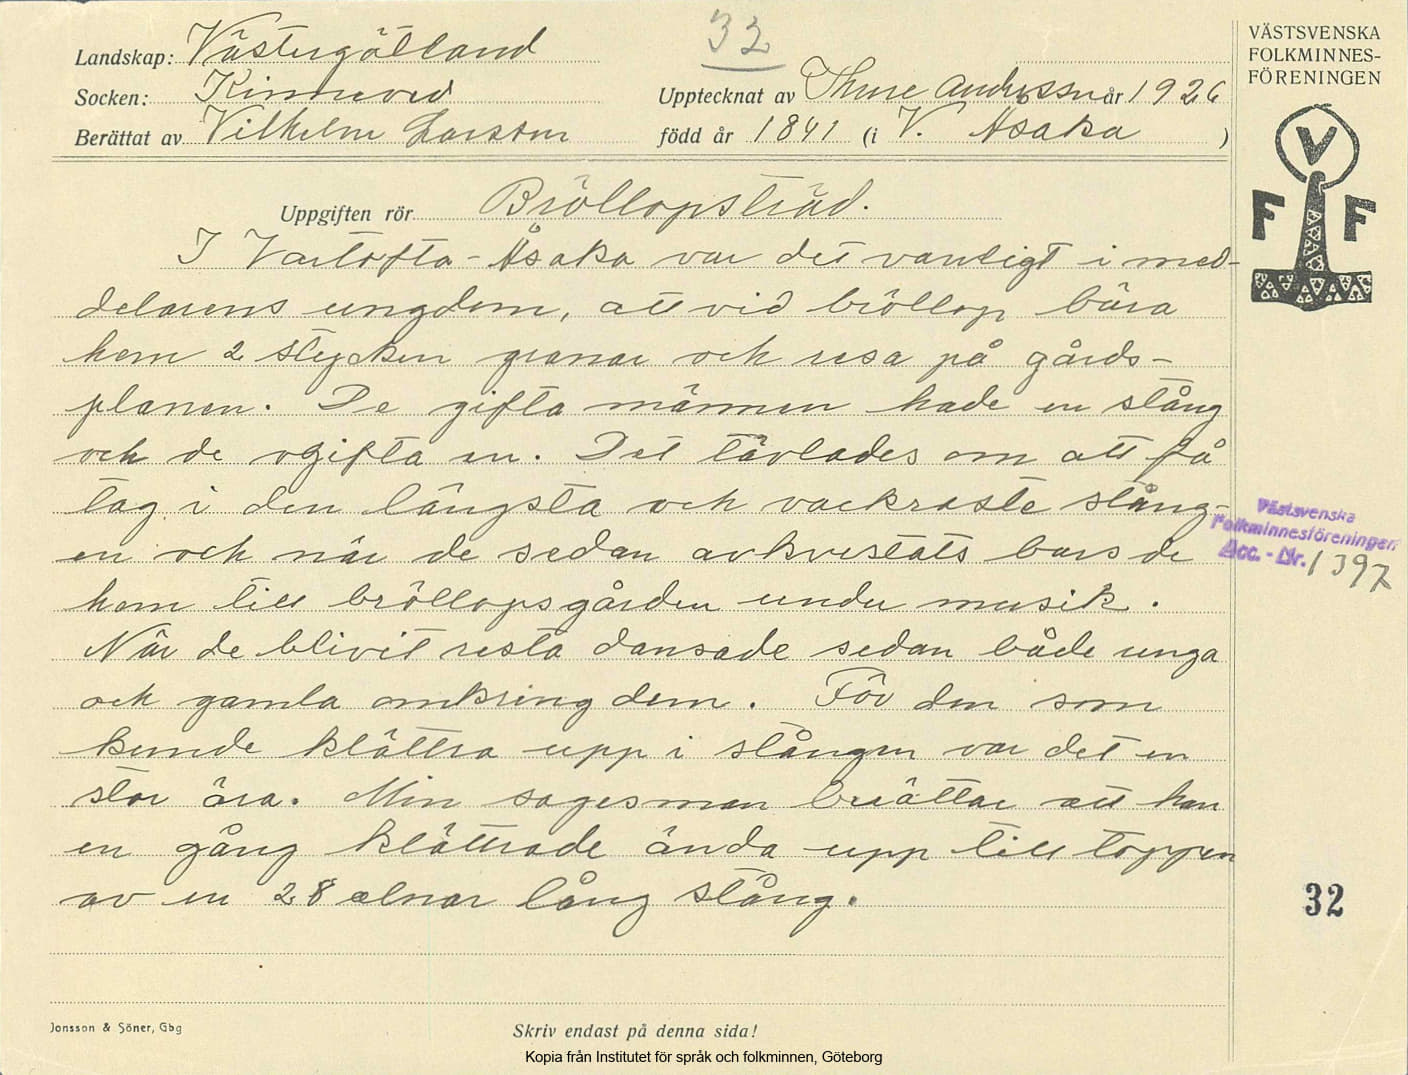 32
Landskap: Västergötland
Socken: Kinneved
Berättat av Vilhelm Larsson
Upptecknat av Thure Andersson år 1926
född år 1841 (i V. Åsaka )
VÄSTSVENSKA
FOLKMINNES-
FÖRENINGEN
V
F F
Uppgiften rör Bröllopsträd.
I Vartofta-Åsaka var det vanligt i med-
delarens ungdom, att vid bröllop bära
hem 2 stycken granar och resa på gårds-
planen. De gifta männen hade en stång
och de ogifta en. Det tävlades om att få
tag i den längsta och vackraste stång-
en och när de sedan avkvistats bars de
hem till bröllopsgården under musik.
När de blivit resta dansade sedan både unga
och gamla omkring dem. För den som
kunde klättra upp i stången var det en
stor ära. Min sagesman berättar att han
en gång klättrade ända upp till toppen
av en 28 alnar lång stång.
Västsvenska
Folkminnesföreningen
Acc. - Nr. 1397
32
Jonsson & Söner, Gbg
Skriv endast på denna sida!
Kopia från Institutet för språk och folkminnen, Göteborg